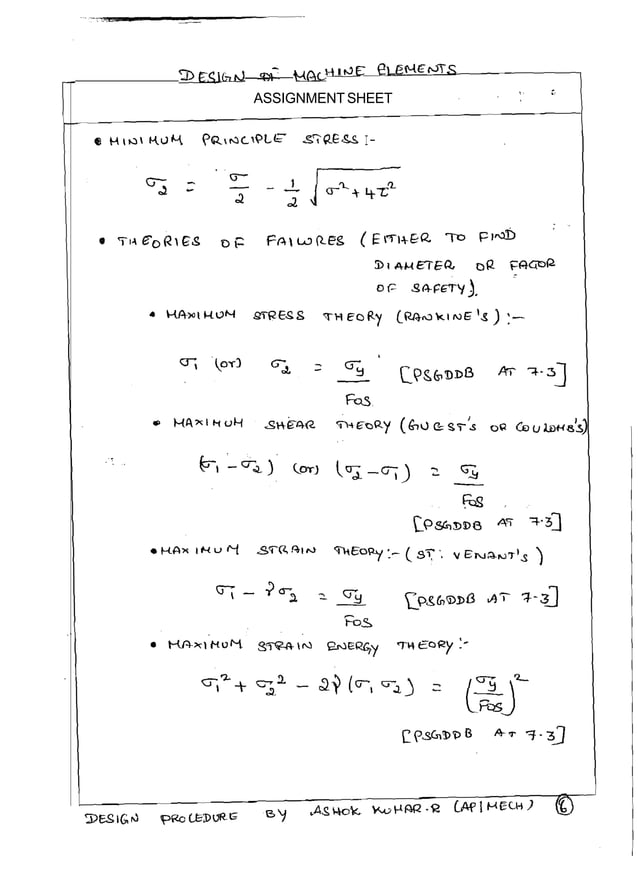 DESIGN OF MACHINE ELEMENTS
ASSIGNMENT SHEET
• MINIMUM PRINCIPLE STRESS :-
σ₂ = σ/2 - 1/2 √(σ² + 4τ²)
• THEORIES OF FAILURES (EITHER TO FIND
DIAMETER OR FACOR
OF SAFETY).
• MAXIMUM STRESS THEORY (RANKINE'S) :-
σ₁ (or) σ₂ = σy/FOS [PSGDDB AT 7.3]
• MAXIMUM SHEAR THEORY (GUEST'S OR COULOMB'S)
(σ₁ - σ₂) (or) (σ₂ - σ₁) = σy/FOS
[PSGDDB AT 7.3]
• MAXIMUM STRAIN THEORY :- (ST. VENANT'S)
σ₁ - νσ₂ = σy/FOS [PSGDDB AT 7.3]
• MAXIMUM STRAIN ENERGY THEORY :-
σ₁² + σ₂² - 2ν(σ₁ σ₂) = (σy/FOS)²
[PSGDDB AT 7.3]
DESIGN PROCEDURE BY ASHOK KUMAR.R (AP/MECH) 6